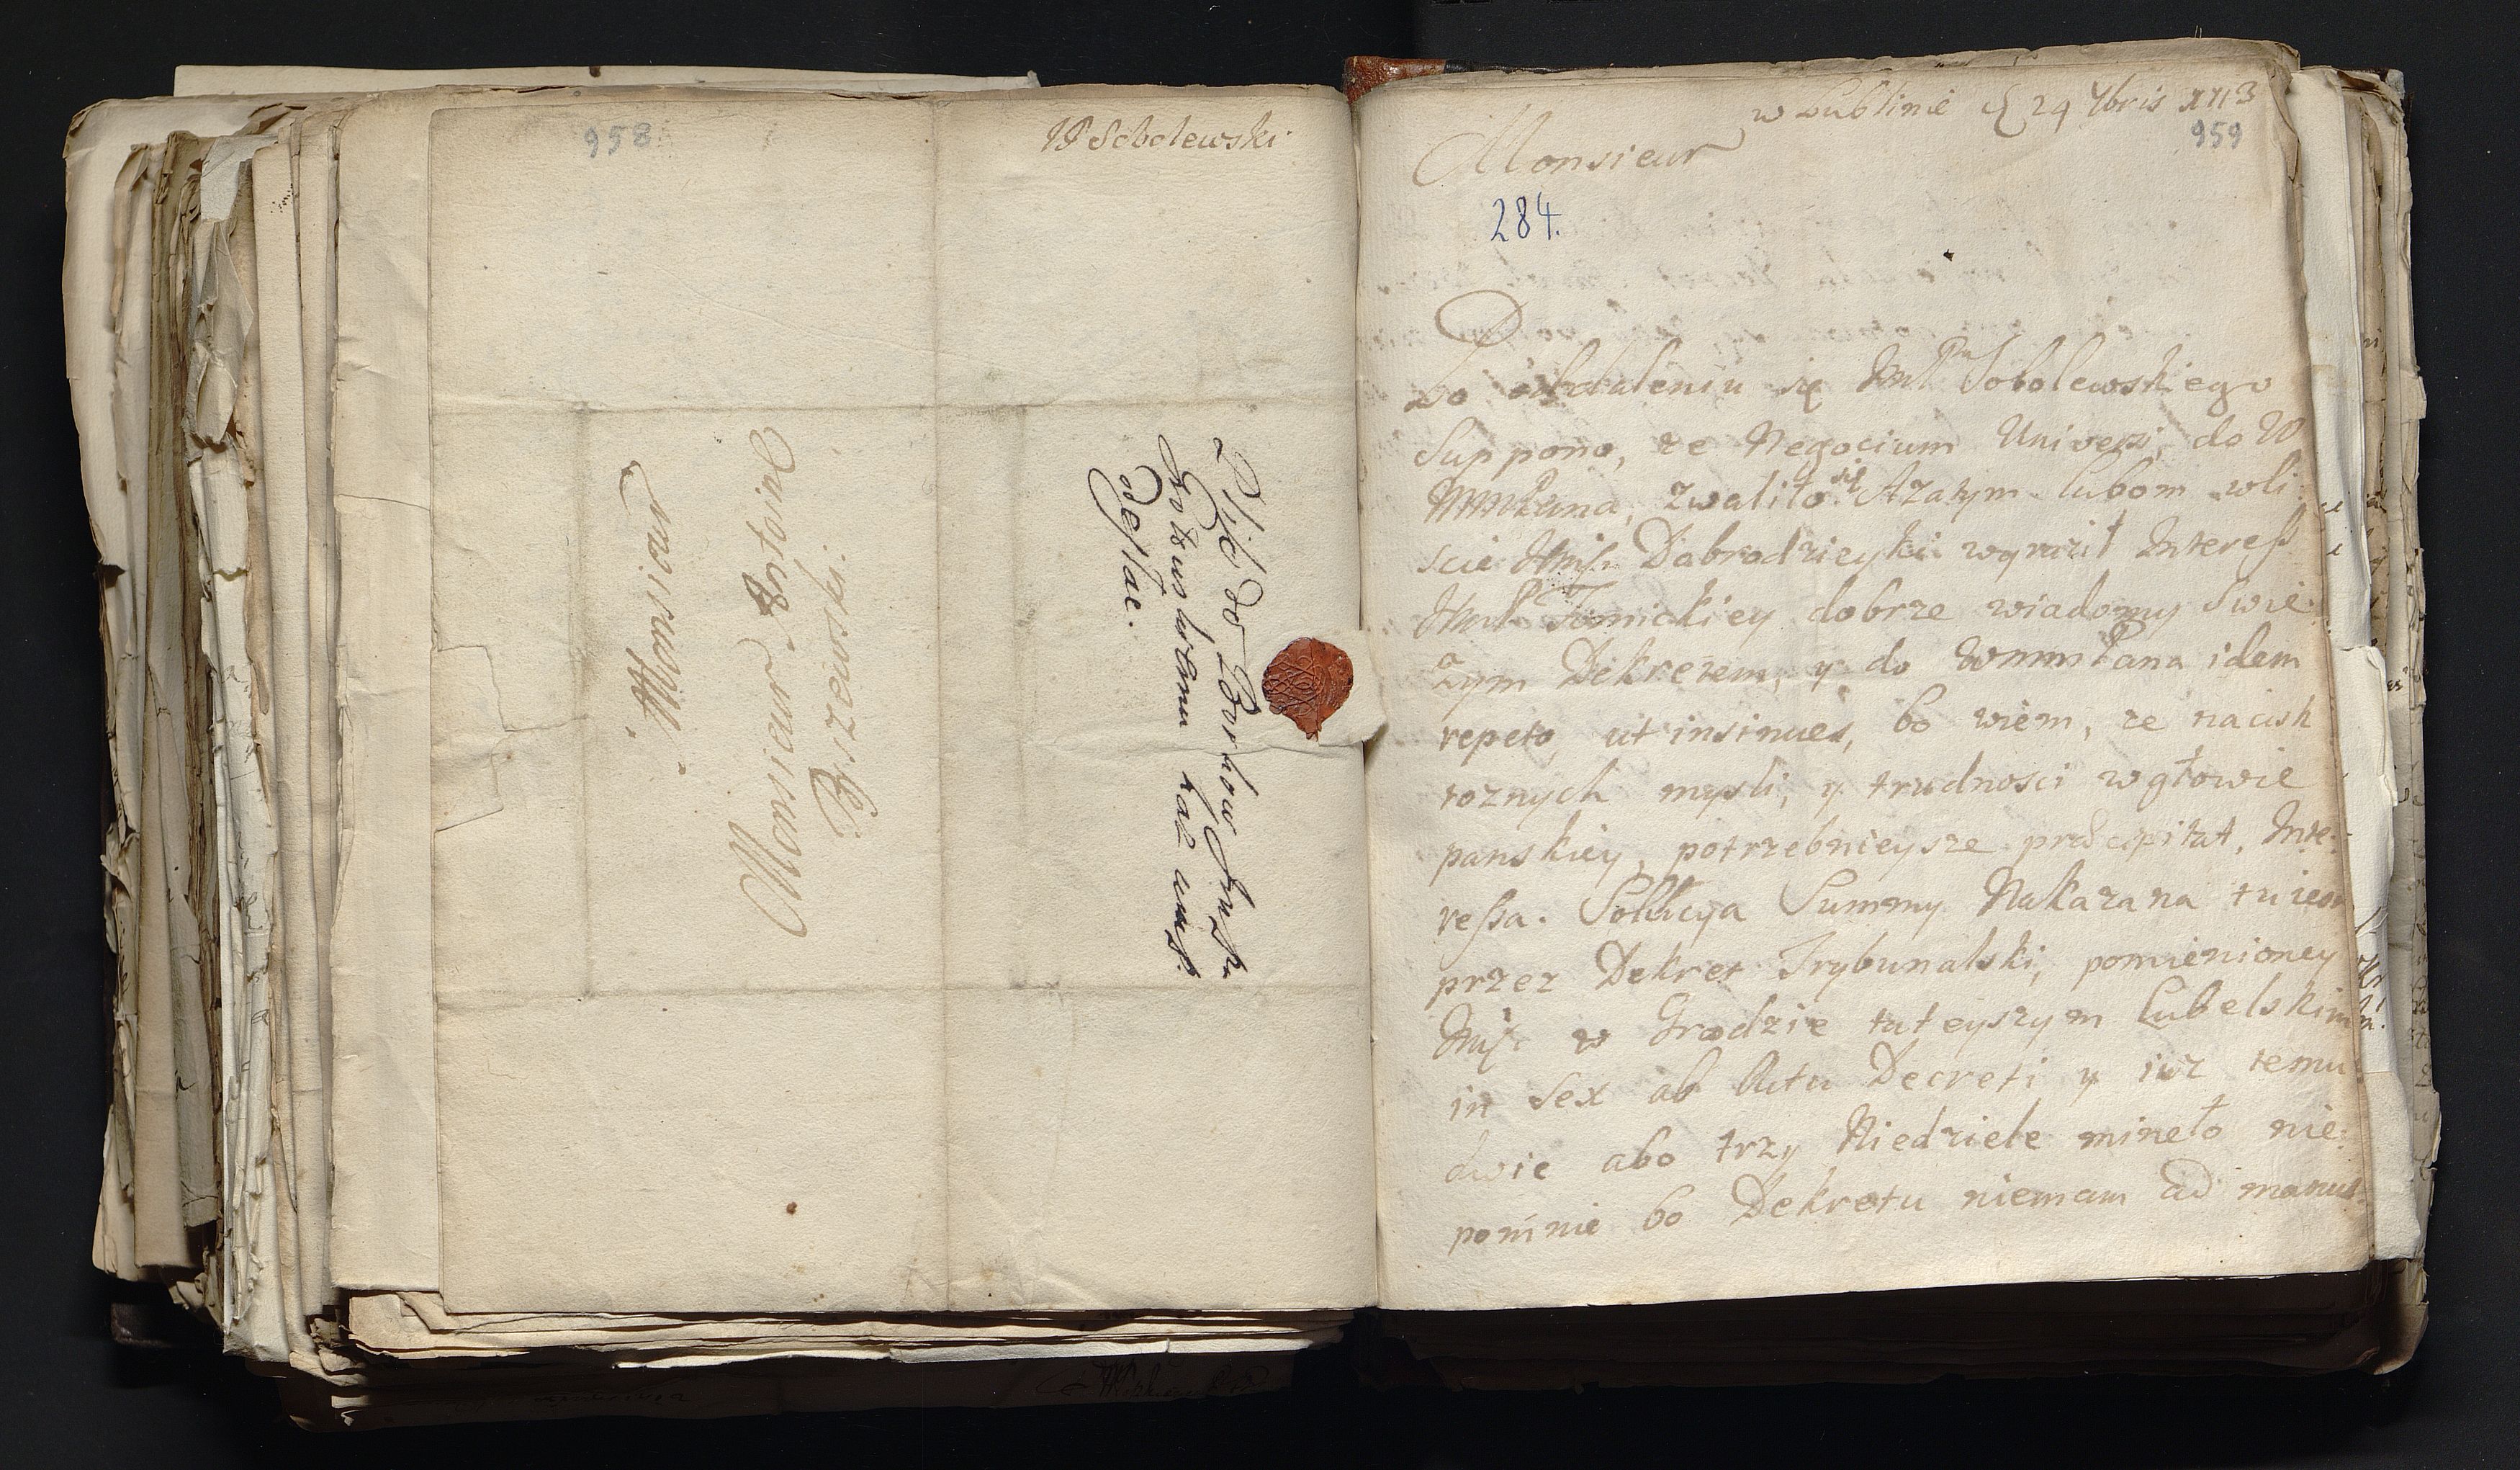 958
W Sobolewski
A Monsieur
Monsieur Bestwin
Ryszewski.
Pisść do Borkow Imśći
odesłac.
w Lublinie d 24 7bris 1713
959
Monsieur
284.
Po oddaleniu się Jmć Pna Sobolewskiego
Suppono, ze Negocium Univerſi, do W
MmPana, zwaliło się A zatym lubom wli:
scie Jmśći Dobrodzieyki wyraził Interess
JmP Tomickiey dobrze wiadomy Swie:
zym Dekretem, y do WmmPana idem
repeto, ut insinues, bo wiem, ze nacisk
roznych mysli, y trudnosci w głowie
panskiey, potrzebnieysze præcipitat, Inte:
ressa. Solucya Summy Nakazana tu iest
przez Dekret Trybunalski, pomienioney
Jmśći w Grodzie tuteyszym Lubelskim
in sex ab Actu Decreti y iuz temu
dwie abo trzy Niedziele mineło nie:
pomnie bo Dekretu niemam ad manus